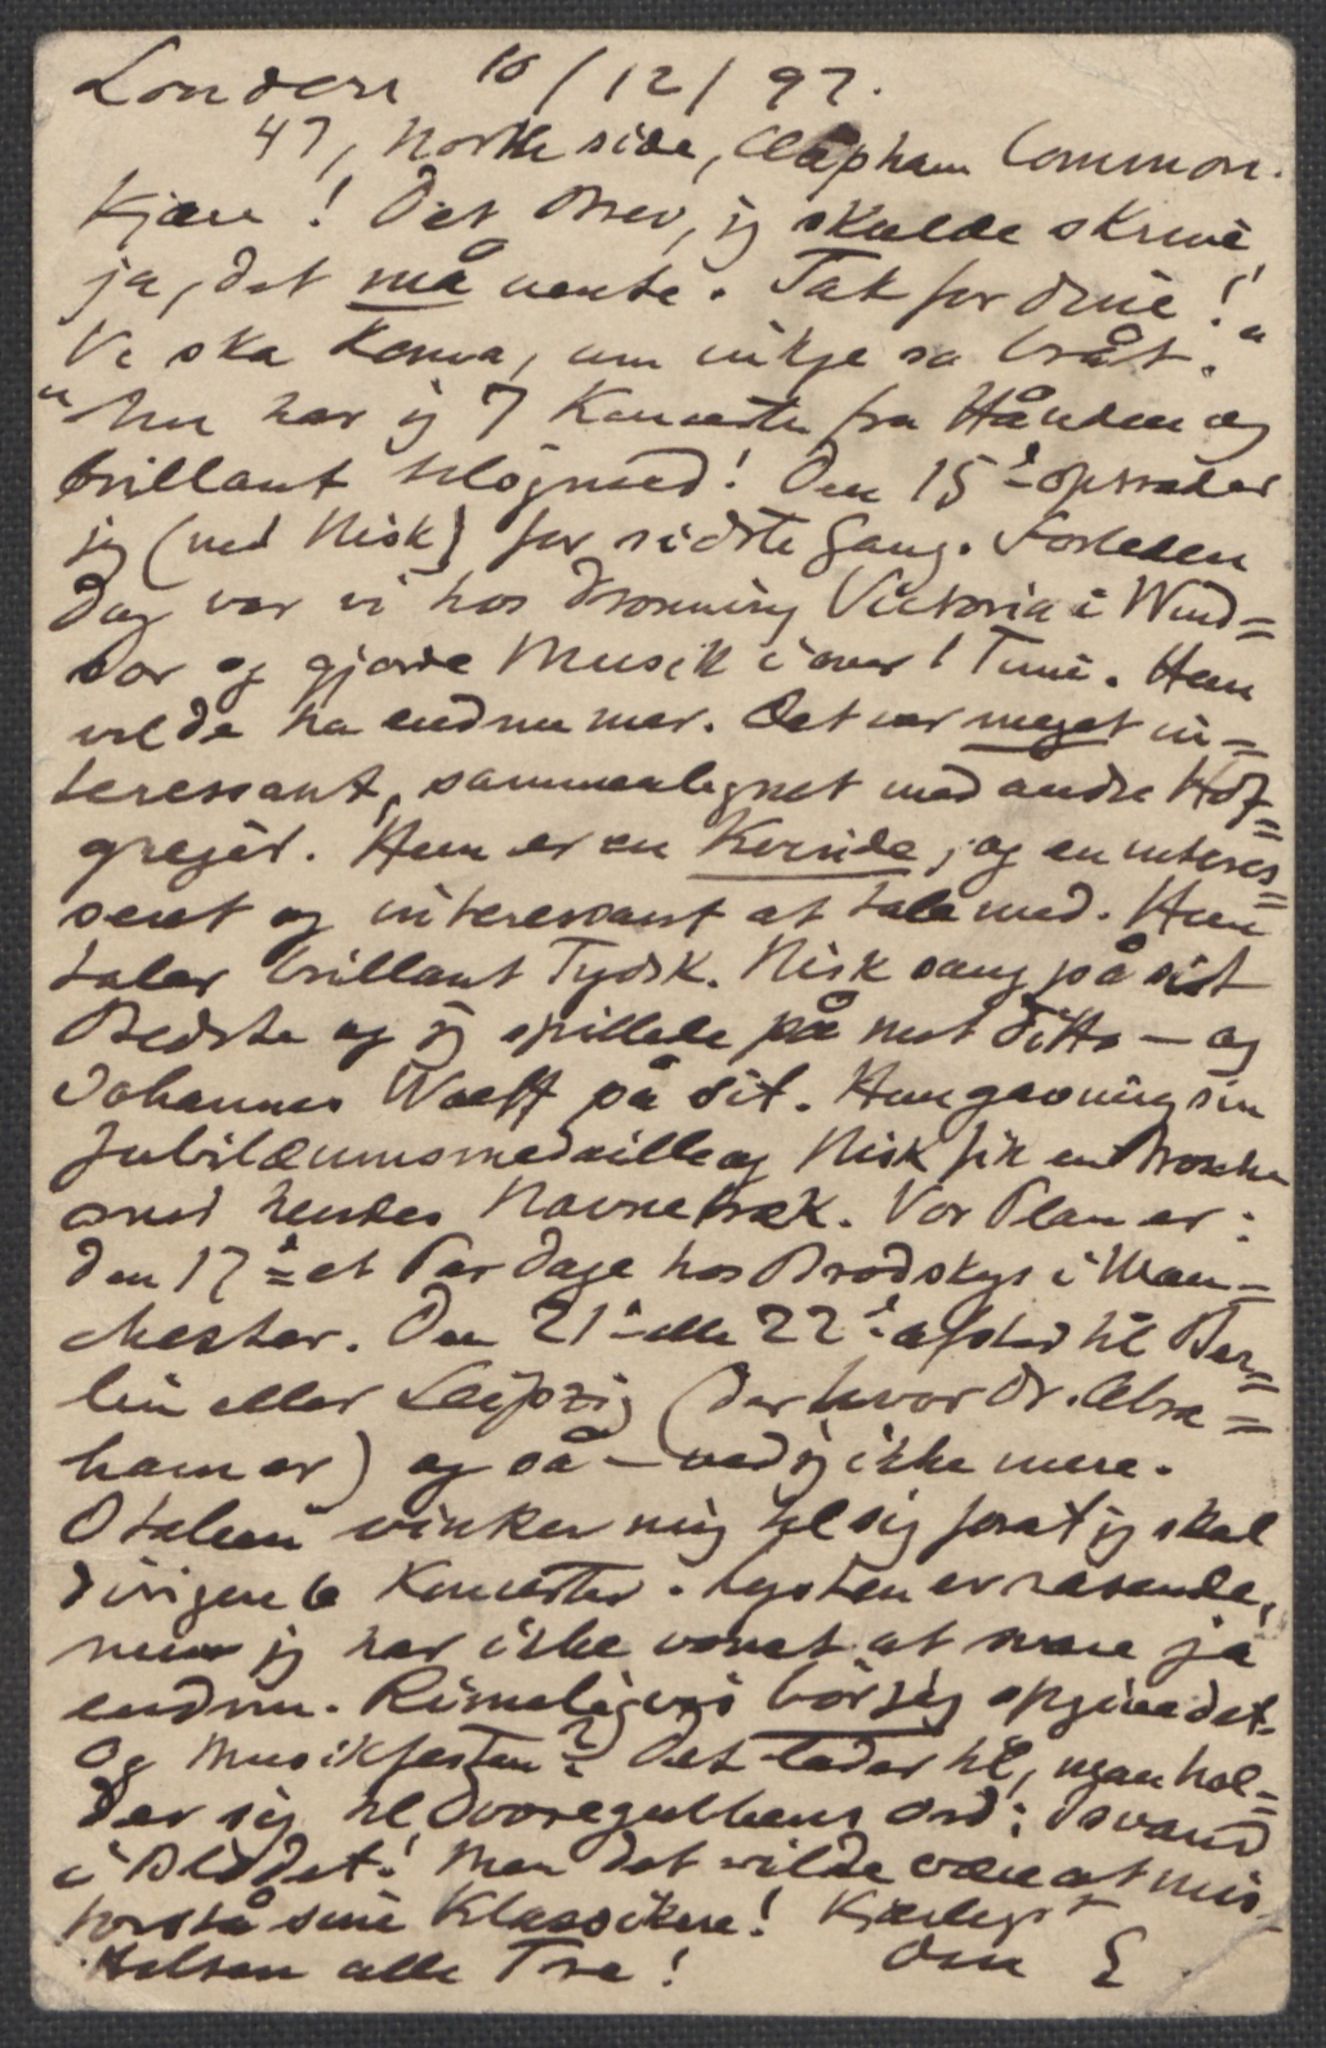 London 10/12/97.
47, North side, Clapham Common.
Kjære! Det Brev, jeg skulde skrive,
ja, det må vente. Tak for dine! "
Vi ska koma, um inkje so bråt. "
Nu har jeg 7 Koncerter fra Hånden og
brillant tilögmed! Den 15de optræder
jeg (med Nisk) for sidste Gang. Forleden
Dag var vi hos Dronning Victoria i Wind=
sor og gjorde Musik i over 1 Time. Hun
vilde ha endnu mer. Det var meget in=
teressant, sammenlignet med andre Hof=
grejer. Hun er en Kvinde, og en interes=
seret og interessant at tale med. Hun
taler brillant Tydsk. Nisk sang på sit
Bedste og jeg spillede på mit ditto – og
Johannes Wolff på sit. Hun gav mig sin
Jubilæumsmedaille og Nisk fik en Broche
med hendes Navnetræk. Vor Plan er:
den 17de et Par Dage hos Brodskys i Man=
chester. Den 21de eller 22de afsted til Ber=
lin eller Leipzig (der hvor Dr. Abra=
ham er) og så – ved jeg ikke mere.
Italien vinker mig til sig forat jeg skal
dirigere 6 Koncerter. Lysten er rasende,
men jeg har ikke vovet at svare ja
endnu. Rimeligvis bör jeg opgive det.
Og Musikfesten? Det lader til, man hol=
der sig til Dovregubbens Ord: Isvand
i Blodet! Men det vilde være at mis=
forstå sine Klassikere! Kjærligst
Hilsen alle Tre! Din E.